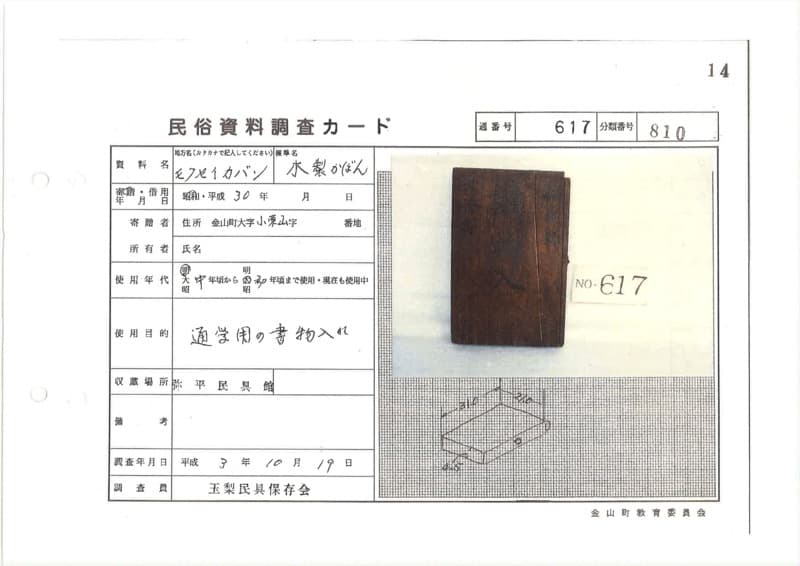 14
民俗資料調査カード
通番号 617 分類番号 810
資料名 地方名(カタカナで記入してください) モクセイカバン 標準名 木製かばん
寄贈・借用年月日 昭和・平成 30 年 月 日
寄贈者 住所 金山町大字小栗山字 番地
所有者 氏名
使用年代 明大昭 中年頃から 明大昭 30年頃まで使用・現在も使用中
使用目的 通学用の書物入れ
収蔵場所 弥平民具館
備考
調査年月日 平成 3 年 10 月 19 日
調査員 玉梨民具保存会
NO-617
31.0
21.0
4.5
金山町教育委員会